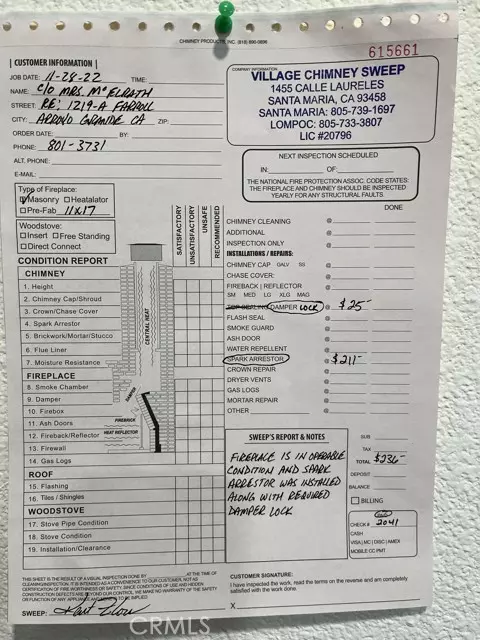 CHIMNEY PRODUCTS, INC. (818) 890-0896
615661
CUSTOMER INFORMATION
JOB DATE: 11-28-22 TIME:
NAME: c/o MRS. McELRATH
STREET: RE: 1219-A FARROLL
CITY: ARROYO GRANDE CA ZIP:
ORDER DATE: BY:
PHONE: 801-3731
ALT. PHONE:
E-MAIL:
COMPANY INFORMATION
VILLAGE CHIMNEY SWEEP
1455 CALLE LAURELES
SANTA MARIA, CA 93458
SANTA MARIA: 805-739-1697
LOMPOC: 805-733-3807
LIC #20796
NEXT INSPECTION SCHEDULED
IN: OF:
THE NATIONAL FIRE PROTECTION ASSOC. CODE STATES:
THE FIREPLACE AND CHIMNEY SHOULD BE INSPECTED
YEARLY FOR ANY STRUCTURAL FAULTS.
Type of Fireplace:
Masonry Heatalator
Pre-Fab 11x17
Woodstove:
Insert Free Standing
Direct Connect
SATISFACTORY
UNSATISFACTORY
UNSAFE
RECOMMENDED
CONDITION REPORT
CHIMNEY
1. Height
2. Chimney Cap/Shroud
3. Crown/Chase Cover
4. Spark Arrestor
5. Brickwork/Mortar/Stucco
6. Flue Liner
7. Moisture Resistance
FIREPLACE
8. Smoke Chamber
9. Damper
10. Firebox
11. Ash Doors
12. Fireback/Reflector
13. Firewall
14. Gas Logs
ROOF
15. Flashing
16. Tiles / Shingles
WOODSTOVE
17. Stove Pipe Condition
18. Stove Condition
19. Installation/Clearance
CENTRAL HEAT
DAMPER
FIREBRICK
HEAT REFLECTOR
DONE
CHIMNEY CLEANING @
ADDITIONAL @
INSPECTION ONLY @
INSTALLATIONS / REPAIRS:
CHIMNEY CAP GALV SS @
CHASE COVER: @
FIREBACK | REFLECTOR @
SM MED LG XLG MAG
TOP SEALING DAMPER LOCK @ $25-
FLASH SEAL @
SMOKE GUARD @
ASH DOOR @
WATER REPELLENT @
SPARK ARRESTOR @ $211-
CROWN REPAIR @
DRYER VENTS @
GAS LOGS @
MORTAR REPAIR @
OTHER @
SWEEP'S REPORT & NOTES
FIREPLACE IS IN OPERABLE
CONDITION AND SPARK
ARRESTOR WAS INSTALLED
ALONG WITH REQUIRED
DAMPER LOCK
SUB
TAX
TOTAL $236-
DEPOSIT
BALANCE
BILLING
CHECK # 2041
CASH
VISA | MC | DISC | AMEX
MOBILE CC PMT
THIS SHEET IS THE RESULT OF A VISUAL INSPECTION DONE BY AT THE TIME OF
CLEANING/INSPECTION. IT IS INTENDED AS A CONVENIENCE TO OUR CUSTOMER, NOT AS
CERTIFICATION OF FIRE WORTHINESS OR SAFETY. SINCE CONDITIONS OF USE AND HIDDEN
CONSTRUCTION DEFECTS ARE BEYOND OUR CONTROL, WE MAKE NO WARRANTY OF THE SAFETY
OR FUNCTION OF ANY APPLIANCE AND NONE IS TO BE IMPLIED.
SWEEP:
CUSTOMER SIGNATURE:
I have inspected the work, read the terms on the reverse and am completely
satisfied with the work done.
X
CRMLS